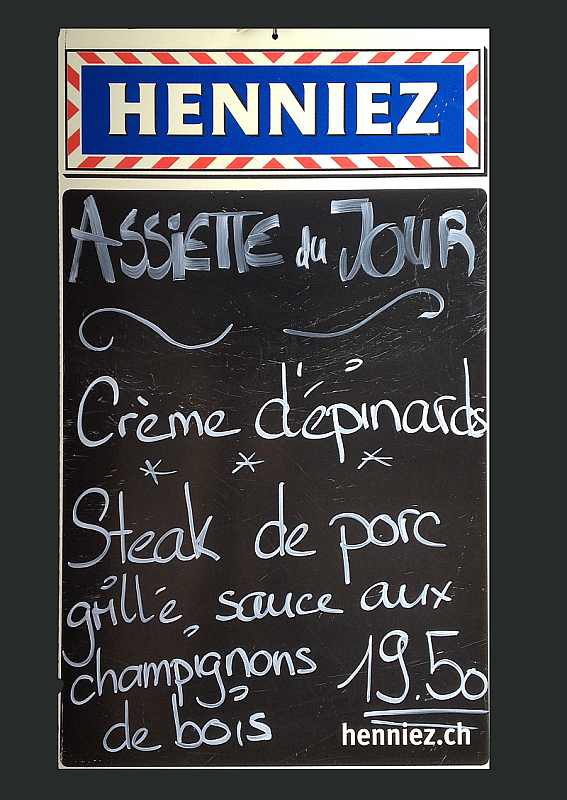 HENNIEZ
ASSIETTE du JOUR
Crème d'épinards
Steak de porc
grillé, sauce aux
champignons 19.50
de bois
henniez.ch